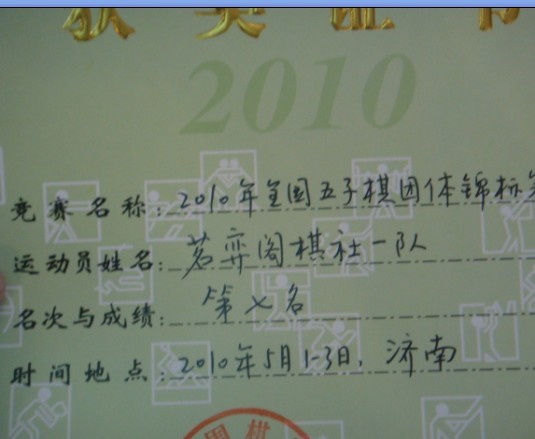 获奖证书
2010
竞赛名称：2010年全国五子棋团体锦标赛
运动员姓名：茗弈阁棋社一队
名次与成绩：第七名
时间地点：2010年5月1-3日，济南
国棋